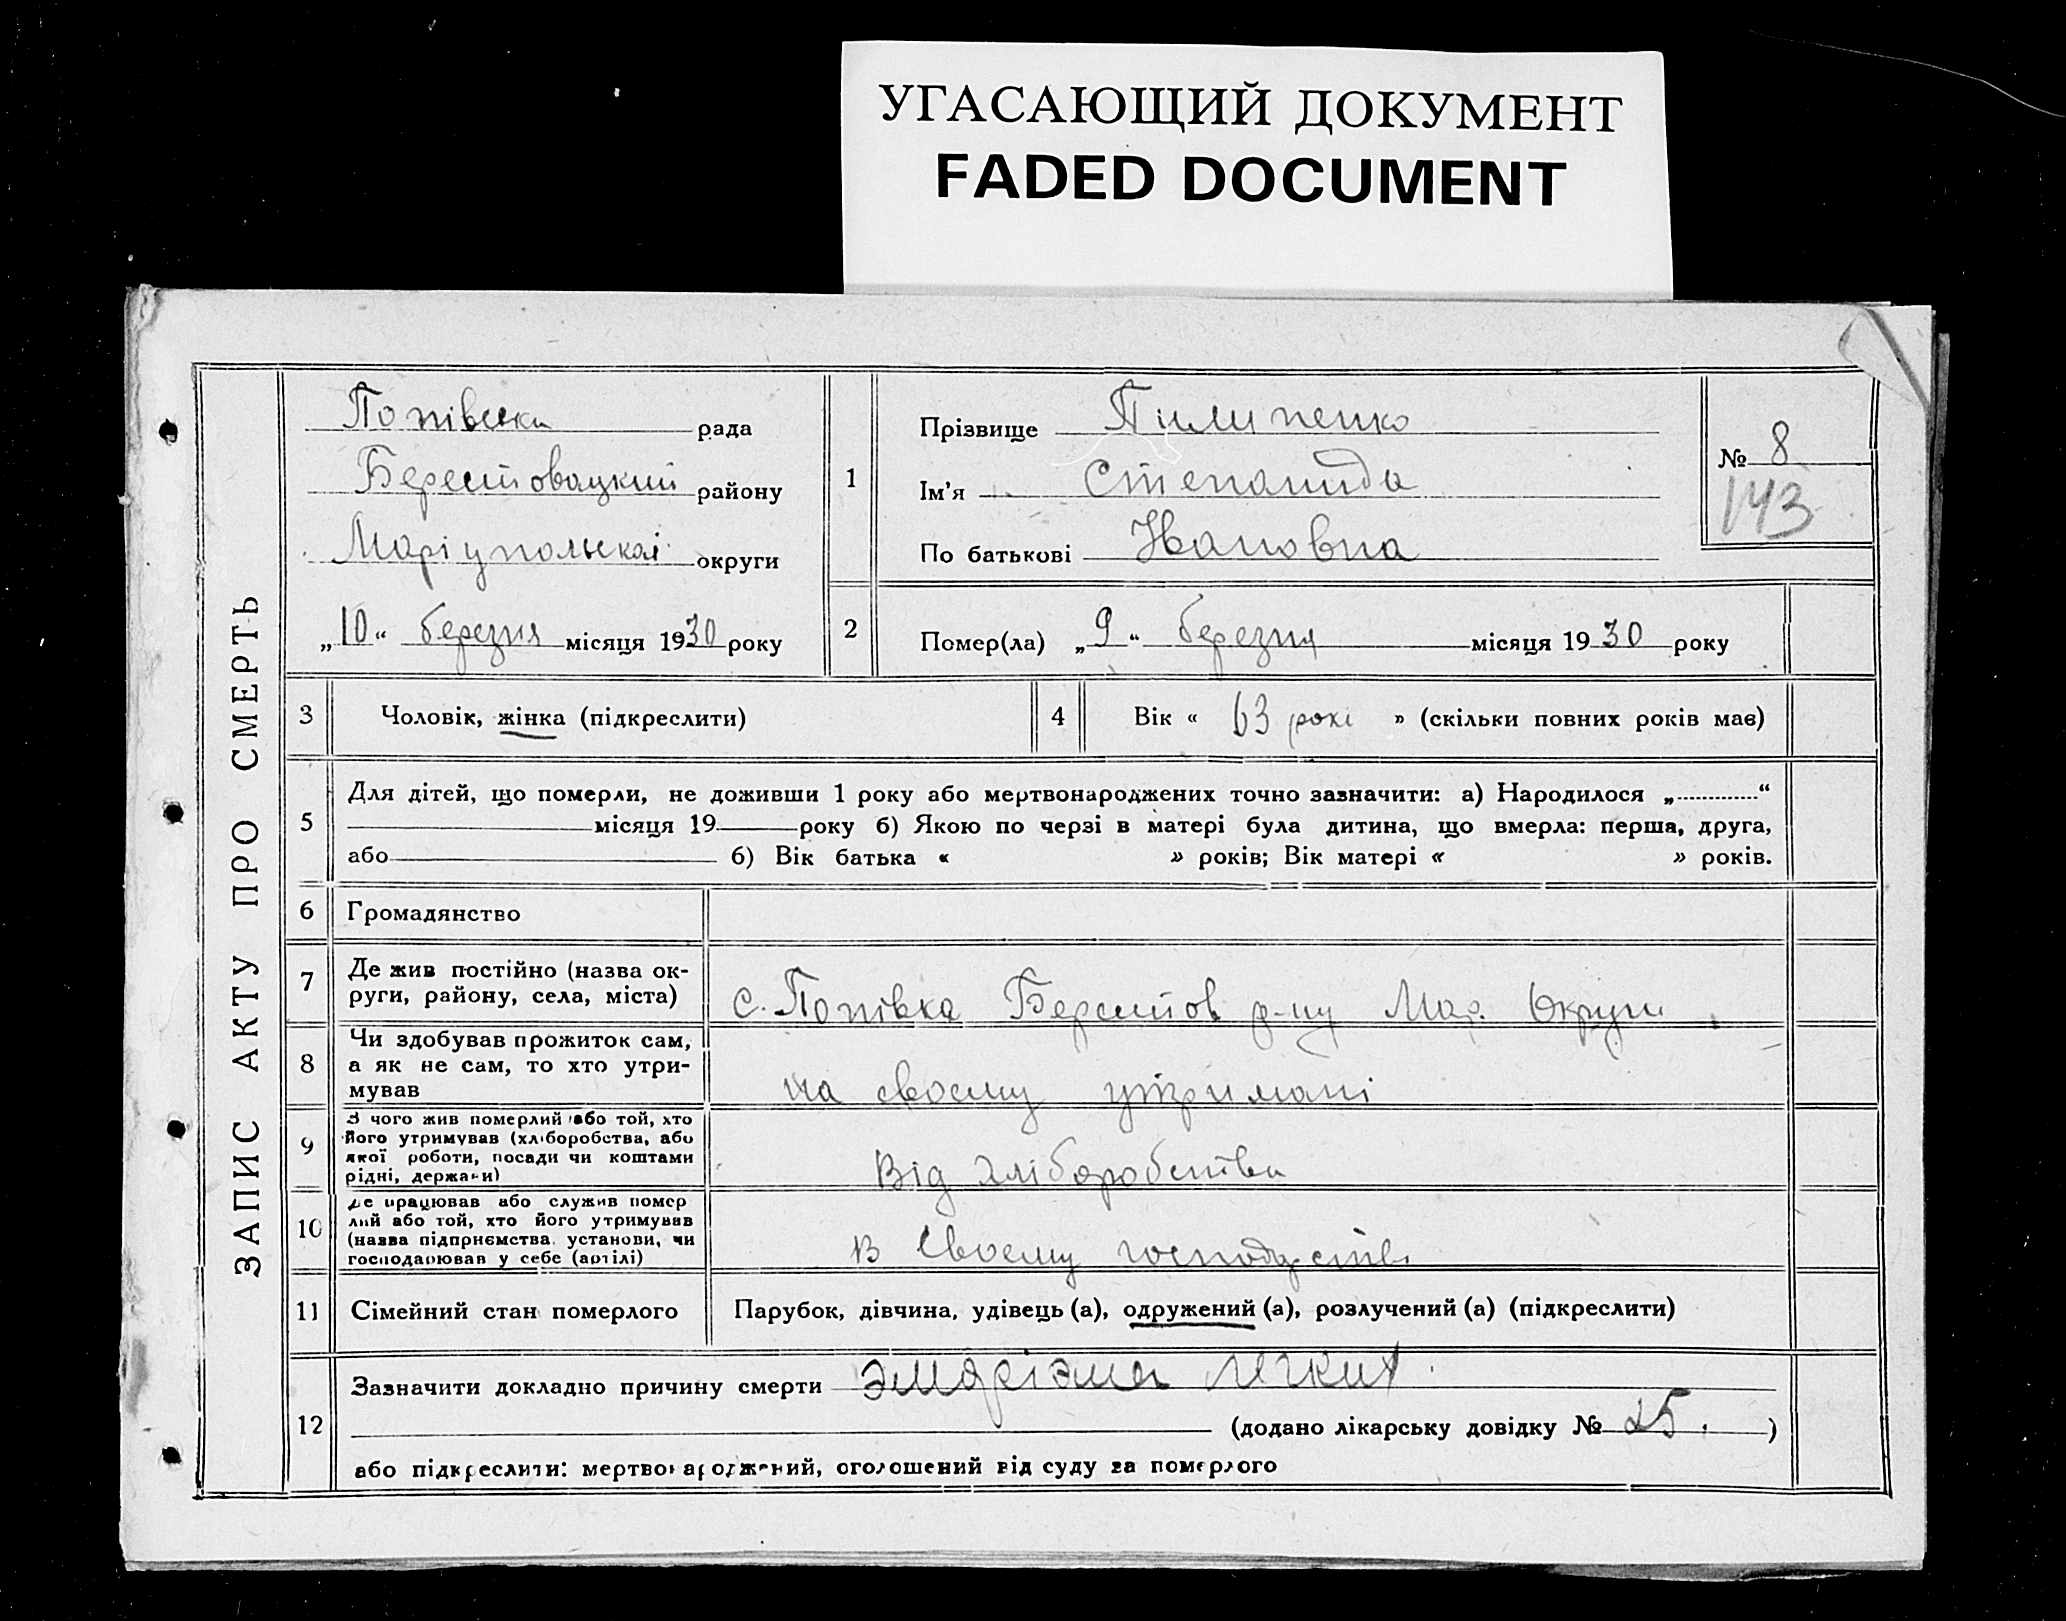 УГАСАЮЩИЙ ДОКУМЕНТ
FADED DOCUMENT
ЗАПИС АКТУ ПРО СМЕРТЬ
Попівска рада
Берестовацкий району
Маріупольскоі округи
„10“ березня місяця 1930 року
1
Прізвище Пилипенко
Ім'я Степанида
По батькові Ивановна
№ 8
143
2
Помер(ла) „9“ березня місяця 1930 року
3 Чоловік, жінка (підкреслити)
4 Вік « 63 рокі » (скільки повних років має)
5 Для дітей, що померли, не доживши 1 року або мертвонароджених точно зазначити: а) Народилося „ “
місяця 19 року б) Якою по черзі в матері була дитина, що вмерла: перша, друга,
або б) Вік батька « » років; Вік матері « » років.
6 Громадянство
7 Де жив постійно (назва ок-
руги, району, села, міста)
с. Попівка Берестов р-ну Мар. Округи
8 Чи здобував прожиток сам,
а як не сам, то хто утри-
мував
на своєму утримані
9 З чого жив померлий або той, хто
його утримував (хліборобства, або
якої роботи, посади чи коштами
рідні, держави)
Від хліборобства
10 Де працював або служив помер
лий або той, хто його утримував
(назва підприємства, установи, чи
господарював у себе (артілі)
в своєму господарстві
11 Сімейний стан померлого
Парубок, дівчина, удівець (а), одружений (а), розлучений (а) (підкреслити)
12 Зазначити докладно причину смерти легких
(додано лікарську довідку № 25. )
або підкреслити: мертвонароджений, оголошений від суду за померлого